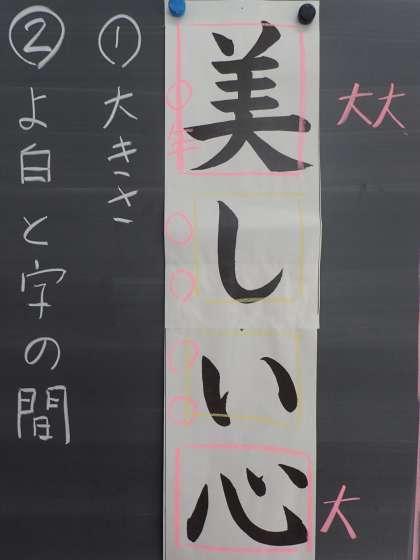 大大
大
美しい心
○年○○○○
①大きさ
②よ白と字の間